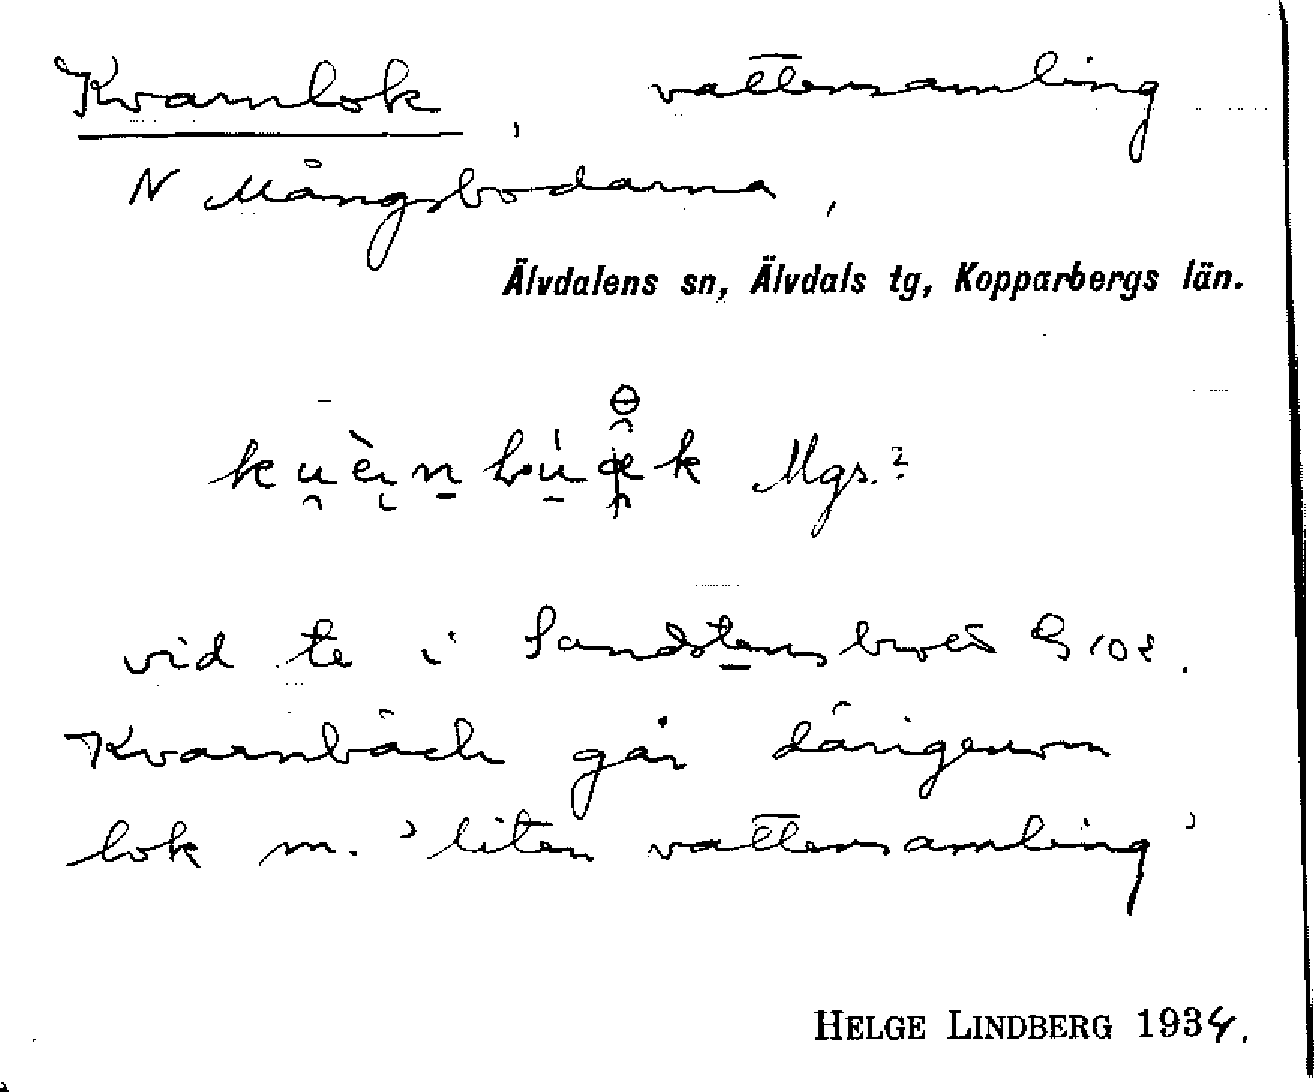 Kvarnlok, vattensamling
N Mångsbodarna,
Älvdalens sn, Älvdals tg, Kopparbergs län.
Mgs.²
vid te i Sandstens G 102.
Kvarnbäck går därigenom
lok m. 'liten vattensamling'
HELGE LINDBERG 1934.